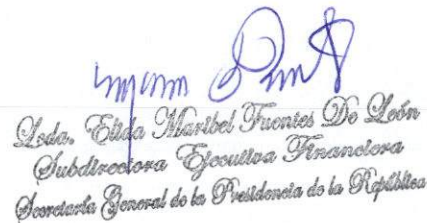 Lcda. Elida Maribel Fuentes De León
Subdirectora Ejecutiva Financiera
Secretaría General de la Presidencia de la República